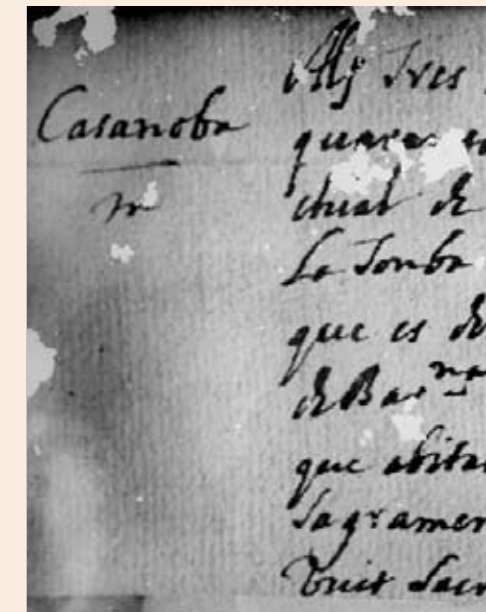 Casanoba
Als Tres
ctual de
La Tomba
que es de
de Bar.na
que abita
Sagramen
Vuit Sacr